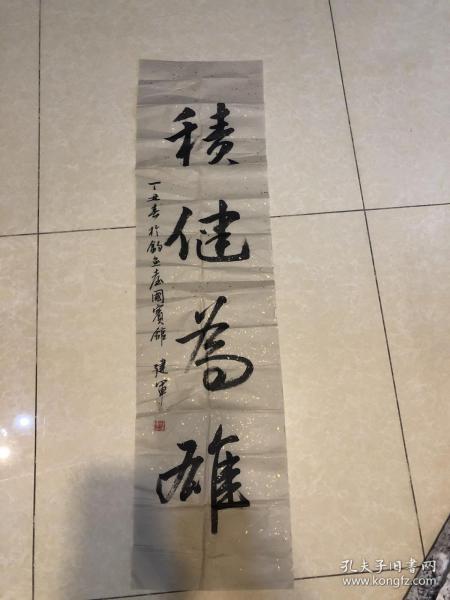 積健為雄
丁丑春於釣魚臺國賓館 建軍
孔夫子旧书网
www.kongfz.com